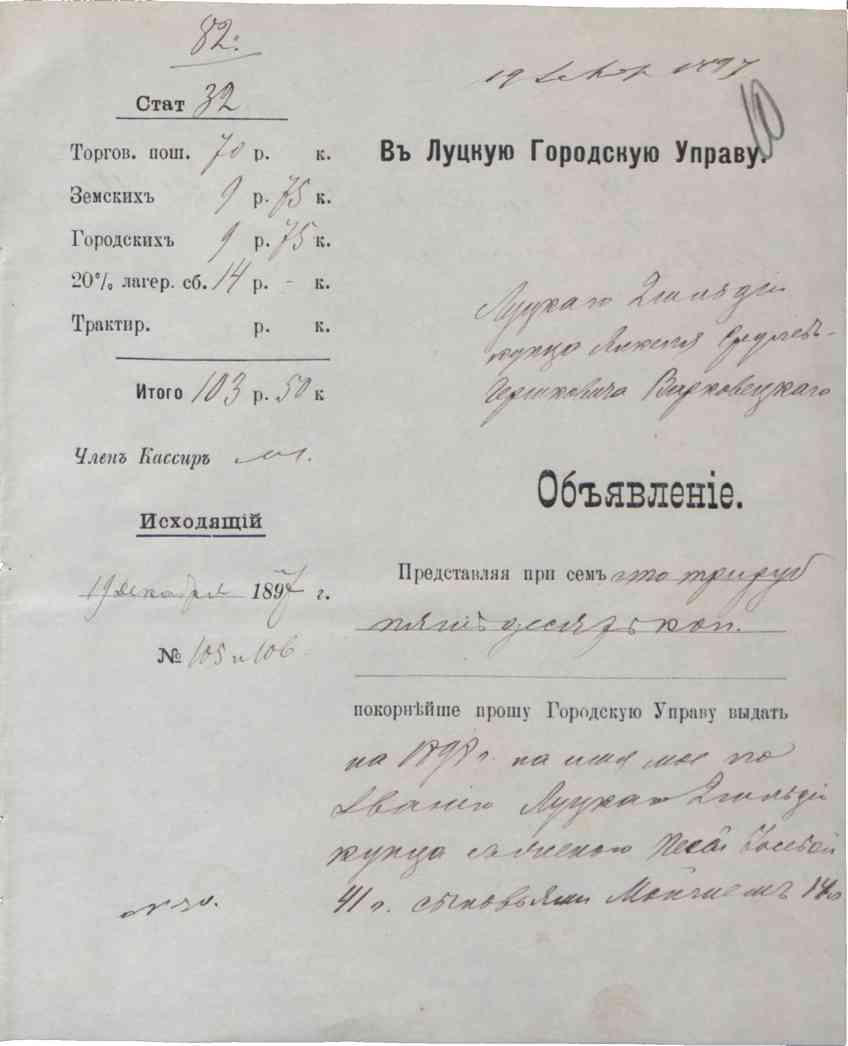 82.
Стат 32
Торгов. пош. 70 р. к.
Земскихъ 9 р. 75 к.
Городскихъ 9 р. 75 к.
20% лагер. сб. 14 р. - к.
Трактир. р. к.
Итого 103 р. 50 к
Членъ Кассиръ
Исходящій
19 декабря 1897 г.
№ 105 и 106
19 1897
10
Въ Луцкую Городскую Управу.
Луцкаго 2 гильдіи
купца
Гершковича Варковецкаго
Объявленіе.
Представляя при семъ сто три руб
пятьдесятъ коп.
покорнѣйше прошу Городскую Управу выдать
на 1898 г. на имя мое по
званію Луцкаго 2 гильдіи
купца съ женою
41 г. сыновьями